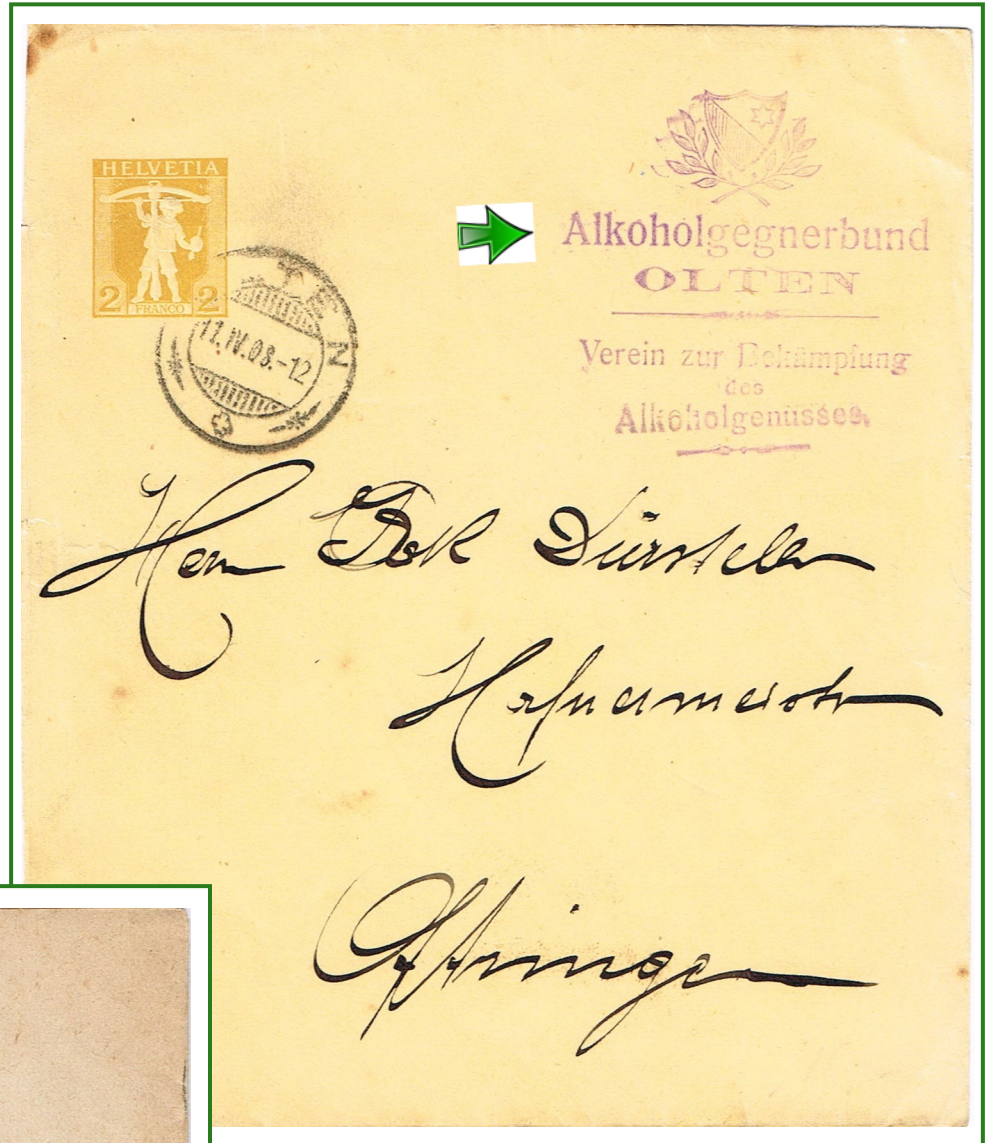 HELVETIA
2 FRANCO 2
TEN
17.IV.08.-12
Alkoholgegnerbund
OLTEN
Verein zur Bekämpfung
des
Alkoholgenusses.
Herrn Dürsteler
Hafnermeister
Oftringen